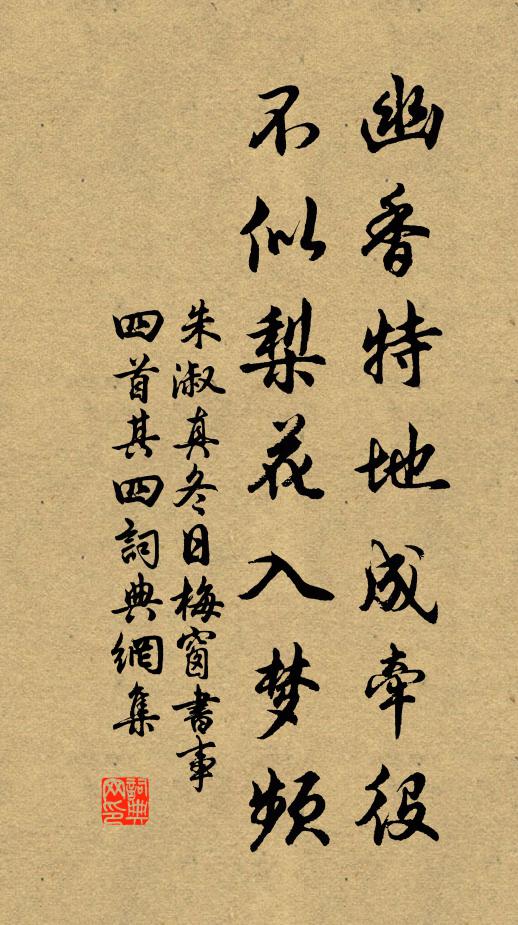 幽香特地成牽役
不似梨花入梦频
朱淑真冬日梅窗書事
四首其四詞典網集
詞典网印